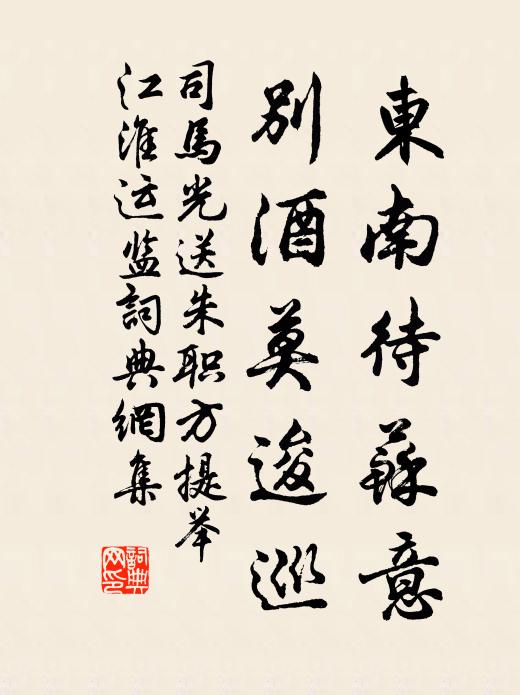 東南待蘇意
別酒莫逡巡
司馬光送朱职方提举
江淮运监詞典網集
詞典网印